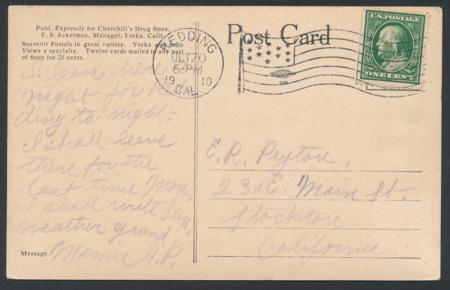 Publ. Expressly for Churchill's Drug Store,
F. S. Ackerman, Manager, Yreka, Cal.
Souvenir Postals in great variety. Yreka and
Views a specialty. Twelve cards mailed to any part
of State for 25 cents.
Post Card
REDDING
OCT 20
5-PM
1910
CAL.
U.S. POSTAGE
ONE CENT
leave here
night for
ding to-night,
I shall leave
there for the
last time Mon,
I shall write Sun,
weather grand
Mamie A.P.
Message
E. R. Peyton,
230 E. Main St.
Stockton
California